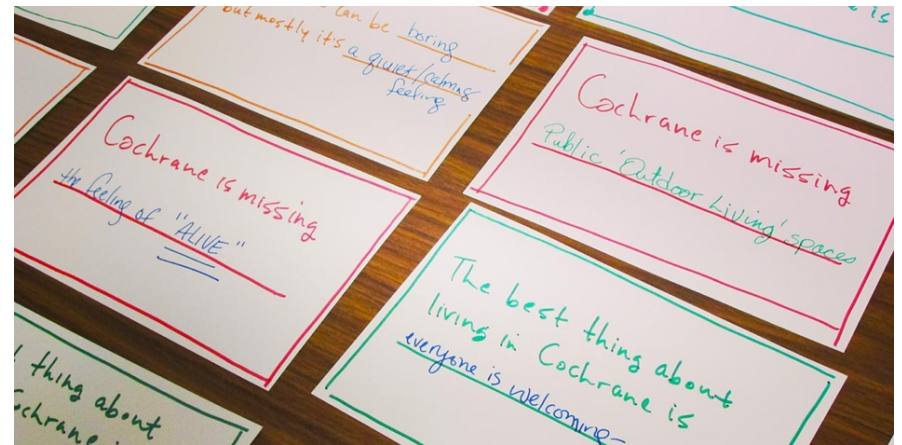 can be boring
but mostly it's a quiet/calming
feeling
is
Cochrane is missing
the feeling of "ALIVE"
Cochrane is missing
Public 'Outdoor Living' spaces
The best thing about
living in Cochrane is
everyone is welcoming-
thing about